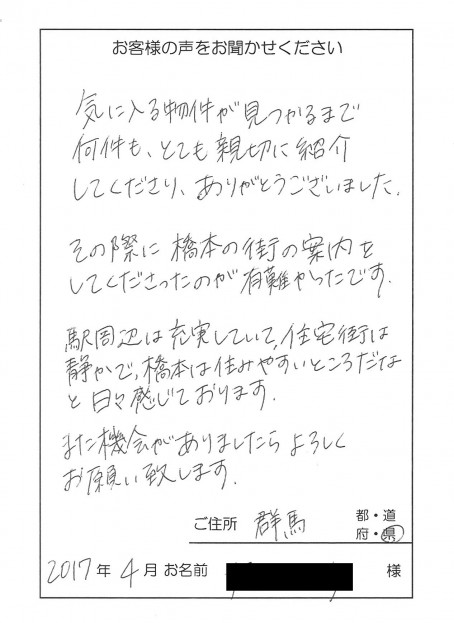 お客様の声をお聞かせください
気に入る物件が見つかるまで
何件も、とても親切に紹介
してくださり、ありがとうございました.
その際に橋本の街の案内を
してくださったのが有難かったです.
駅周辺は充実していて、住宅街は
静かで、橋本は住みやすいところだな
と日々感じております.
また機会がありましたらよろしく
お願い致します.
ご住所 群馬 都・道
府・県
2017年 4月 お名前 様